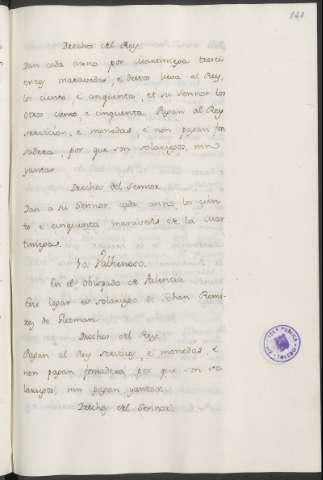 141
Derechos del Rey.
Dan cada anno por Martiniega trescientos
maravedis, e dellos lieva el Rey
los ciento e cinqüenta, et su Sennor los
otros ciento e cinquenta. Pagan al Rey
servicios, e monedas, e non pagan fon
sadera por que son solariegos, nin
yantar.
Derechos del Sennor
Dan a su Sennor cada anno los cien
to e cinquenta maravedis de la Mar
tiniega.
En el Obispado de Palencia
Este logar es solariego de Johan Rami
rez de Guzman.
Derechos del Rey.
Pagan al Rey servicios, e monedas e
non pagan fonsadera por que son so
lariegos, nin pagan yantar.
Derechos del Sennor.